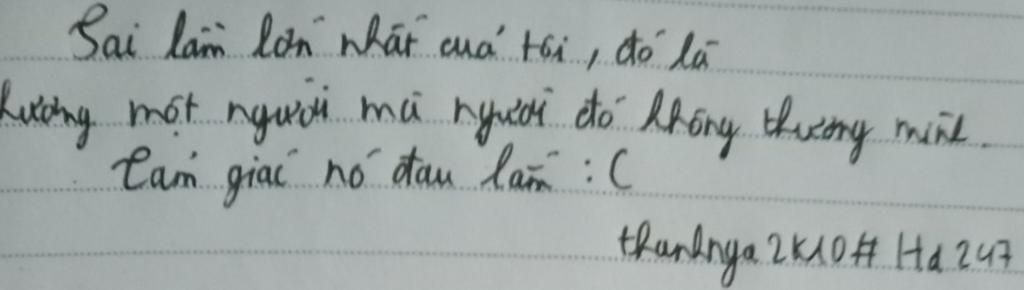 Sai lầm lớn nhất của tôi, đó là
thương một người mà người đó không thương mình.
Cảm giác nó đau lắm :(
thanhnga2k10# Hd247